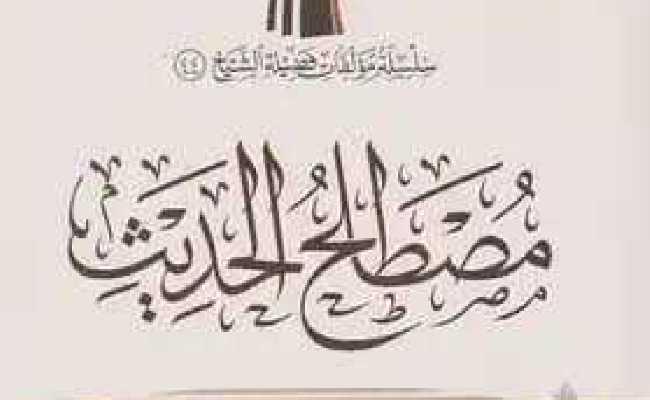 سلسلة مؤلفات فضيلة الشيخ (٤٤)
مُصْطَلَحُ الْحَدِيْثِ